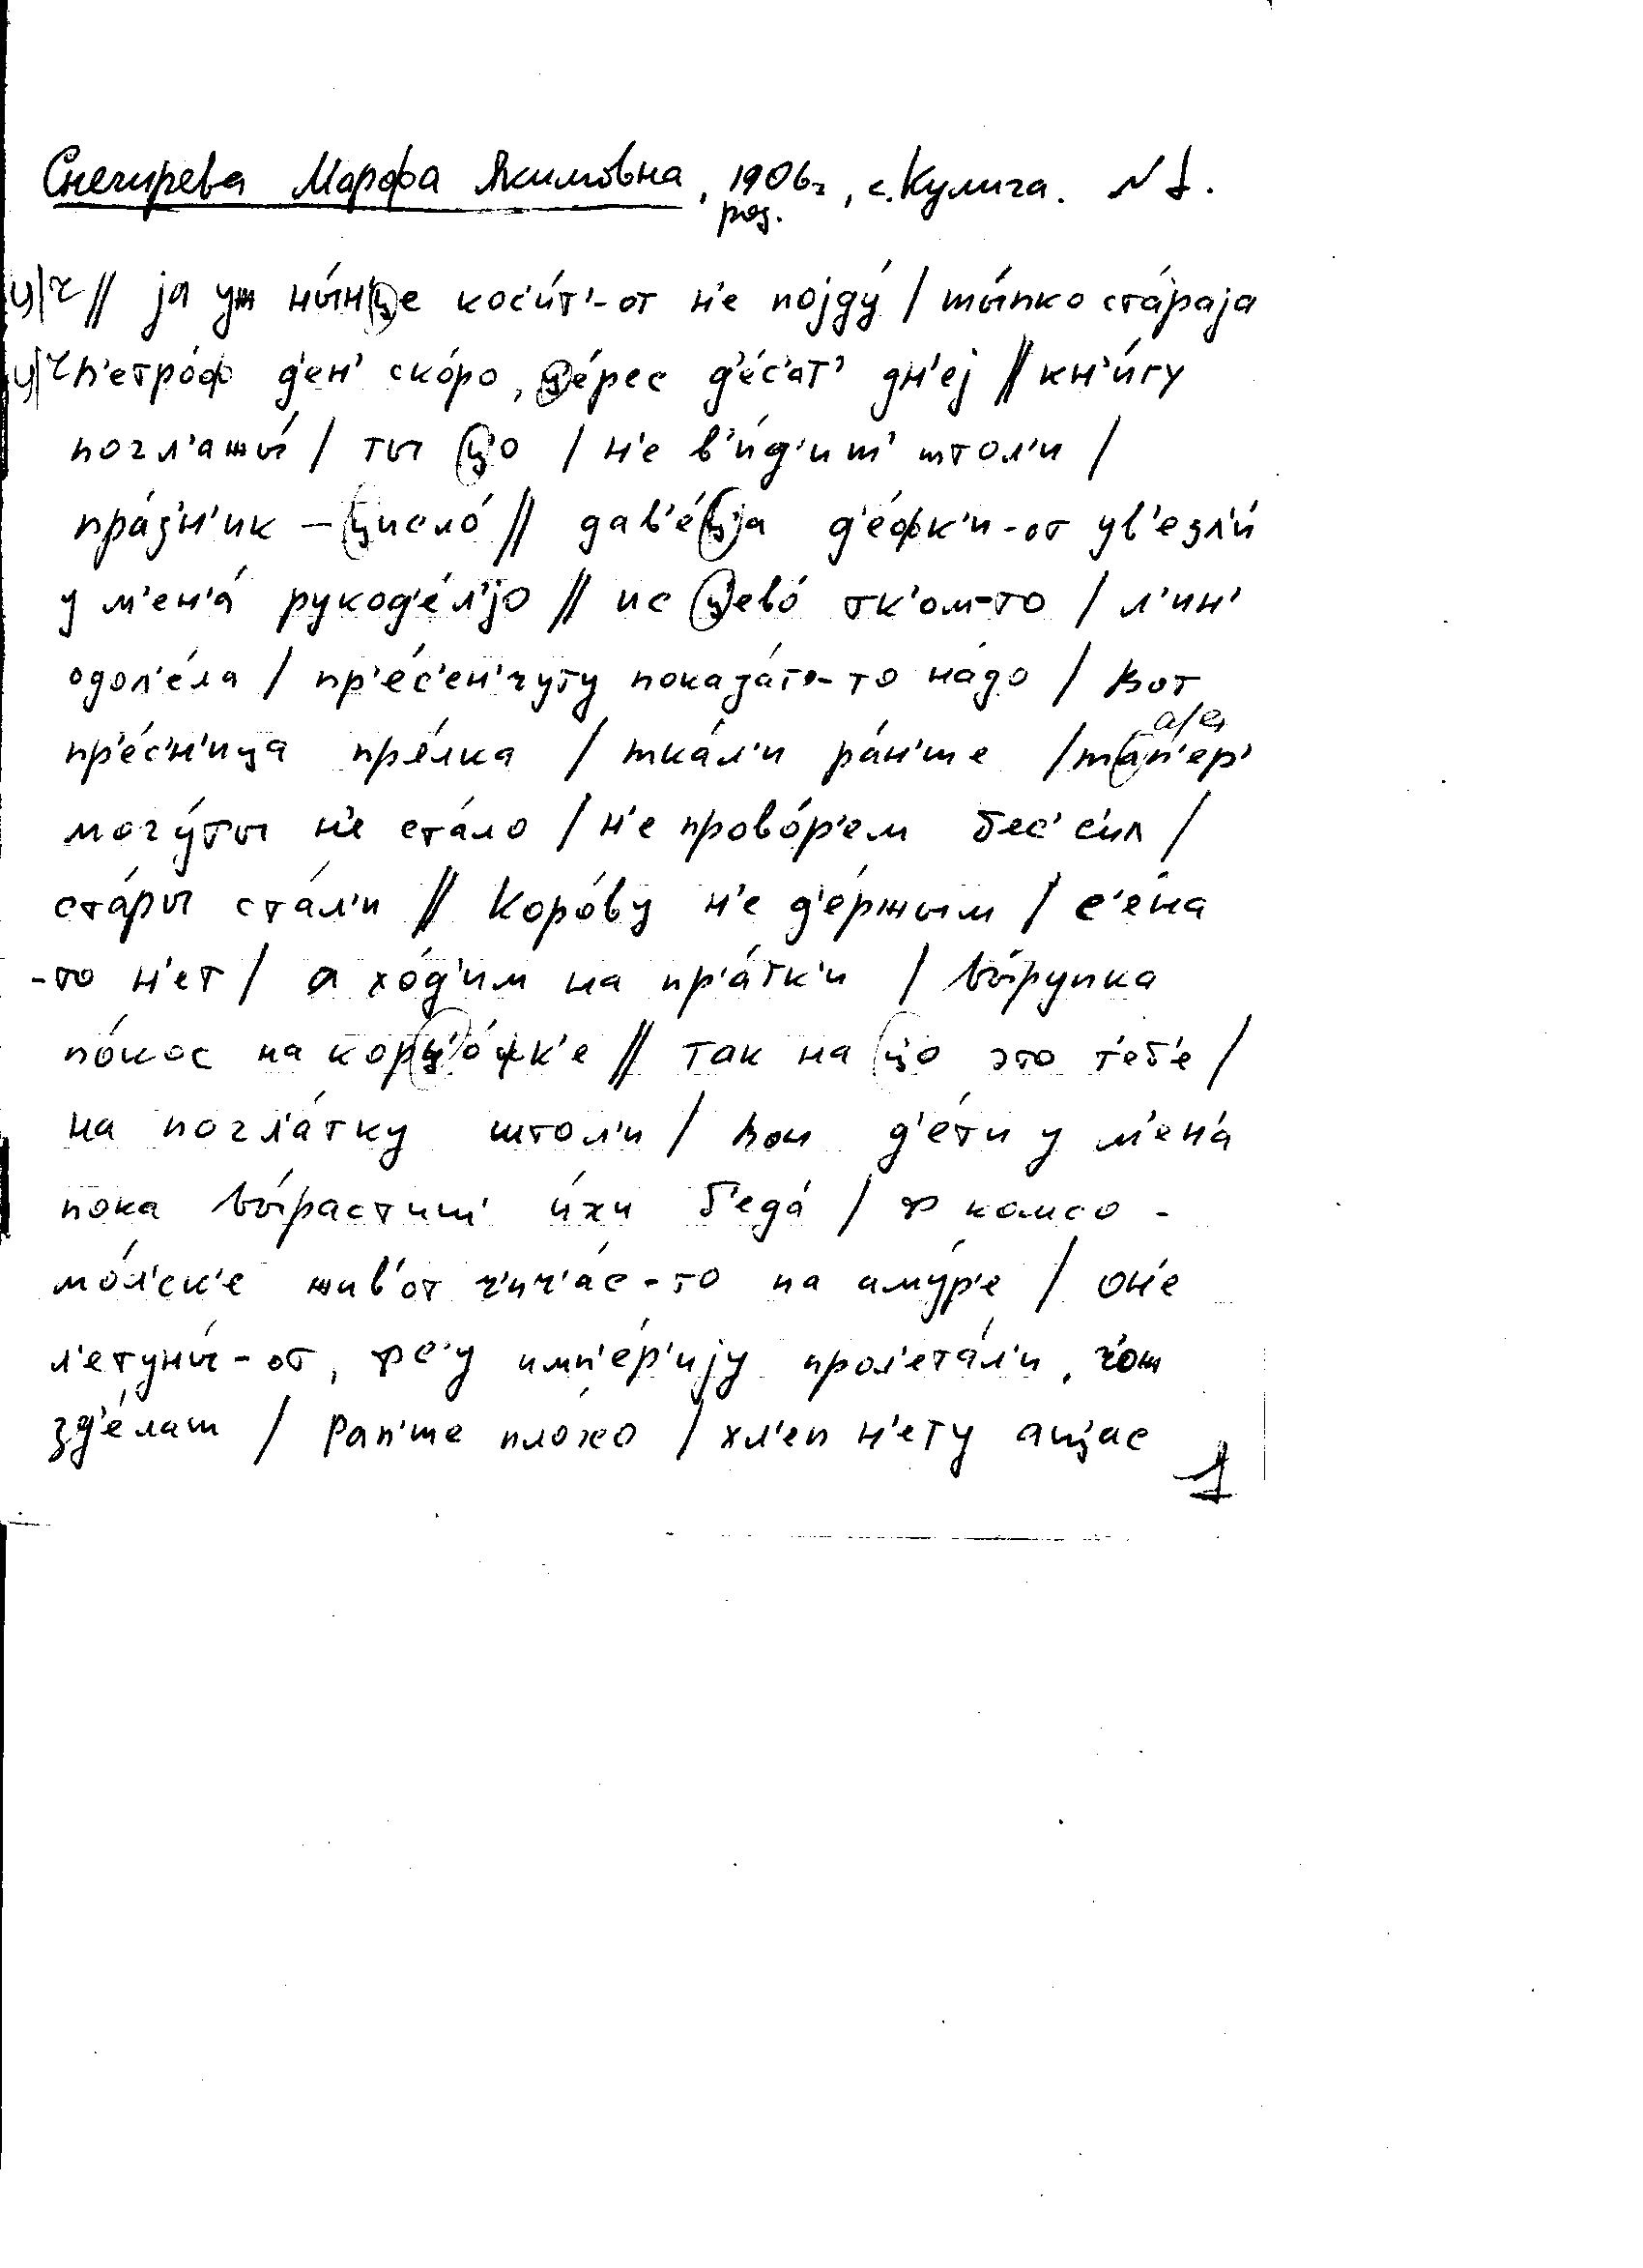 Снегирева Марфа Якимовна, 1906г, с. Кулига. N 1.
род.
ц/ч // jа уж ны́нце кос'и́т'-от н'е поjду́ / шы́пко ста́раjа
ц/ч п'етро́ф д'ен' ско́ро, це́рес д'е́с'ат' дн'еj // кн'и́гу
погл'ажы́ / ты цо / н'е в'и́д'иш' штол'и /
пра́з'н'ик – цисло́ // дав'е́ца д'е́фк'и-от ув'езл'и́
у м'ен'а́ рукод'е́л'jо // ис цево́ тк'ом-то / л'ин'
одол'е́ла / пр'е́с'ен'чуту показа́т'-то на́до / вот
пр'е́с'н'ица пр'а́лка / тка́л'и ра́н'ше / тап'ер'
а/е
могу́ты н'е ста́ло / н'е прово́р'ем бес' с'ил /
ста́ры ста́л'и // коро́ву н'е д'е́ржым / с'е́на
-то н'ет / а хо́д'им на пр'а́тк'и / вы́рупка
по́кос на корц'о́жк'е // так на цо это т'еб'е /
на погл'а́тку штол'и / вои д'е́ти у м'ен'а́
пока вы́растиш' и́хи б'еда́ / ф комсо -
мо́л'ск'е жив'от ч'ич'а́с-то на аму́р'е / он'е
л'етуны́-от, фс'у имп'е́р'иjу прол'ета́л'и, чош
зд'е́лаш / ран'ше плохо / хл'еп н'ету ащас
1